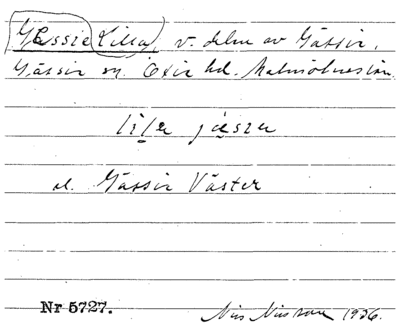 Gessie Lilla, v. delen av Gässie,
Gässie sn. Oxie hd. Malmöhus län
lila jäsza
el. Gässie Väster
Nr 5727. Nils Nilsson 1926.